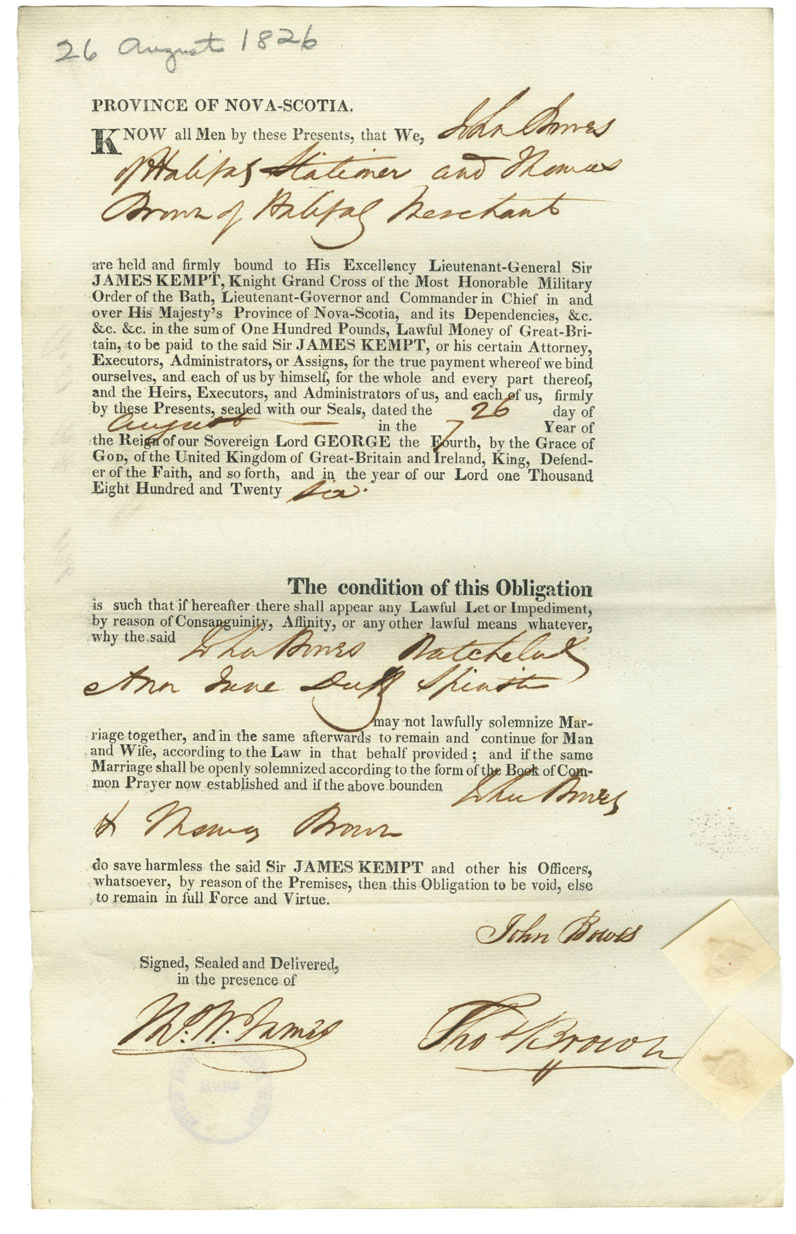 26 August 1826
PROVINCE OF NOVA-SCOTIA.
KNOW all Men by these Presents, that We, John Bowes
of Halifax Stationer and Thomas
Brown of Halifax Merchant
are held and firmly bound to His Excellency Lieutenant-General Sir
JAMES KEMPT, Knight Grand Cross of the Most Honorable Military
Order of the Bath, Lieutenant-Governor and Commander in Chief in and
over His Majesty's Province of Nova-Scotia, and its Dependencies, &c.
&c. &c. in the sum of One Hundred Pounds, Lawful Money of Great-Bri-
tain, to be paid to the said Sir JAMES KEMPT, or his certain Attorney,
Executors, Administrators, or Assigns, for the true payment whereof we bind
ourselves, and each of us by himself, for the whole and every part thereof,
and the Heirs, Executors, and Administrators of us, and each of us, firmly
by these Presents, sealed with our Seals, dated the 26 day of
August in the 7 Year of
the Reign of our Sovereign Lord GEORGE the Fourth, by the Grace of
GOD, of the United Kingdom of Great-Britain and Ireland, King, Defend-
er of the Faith, and so forth, and in the year of our Lord one Thousand
Eight Hundred and Twenty six.
The condition of this Obligation
is such that if hereafter there shall appear any Lawful Let or Impediment,
by reason of Consanguinity, Affinity, or any other lawful means whatever,
why the said John Bowes Batchelor &
Ann Jane Duff Spinster
may not lawfully solemnize Mar-
riage together, and in the same afterwards to remain and continue for Man
and Wife, according to the Law in that behalf provided; and if the same
Marriage shall be openly solemnized according to the form of the Book of Com-
mon Prayer now established and if the above bounden John Bowes
& Thomas Brown
do save harmless the said Sir JAMES KEMPT and other his Officers,
whatsoever, by reason of the Premises, then this Obligation to be void, else
to remain in full Force and Virtue.
John Bowes
Signed, Sealed and Delivered,
in the presence of
W. James
Thos Brown